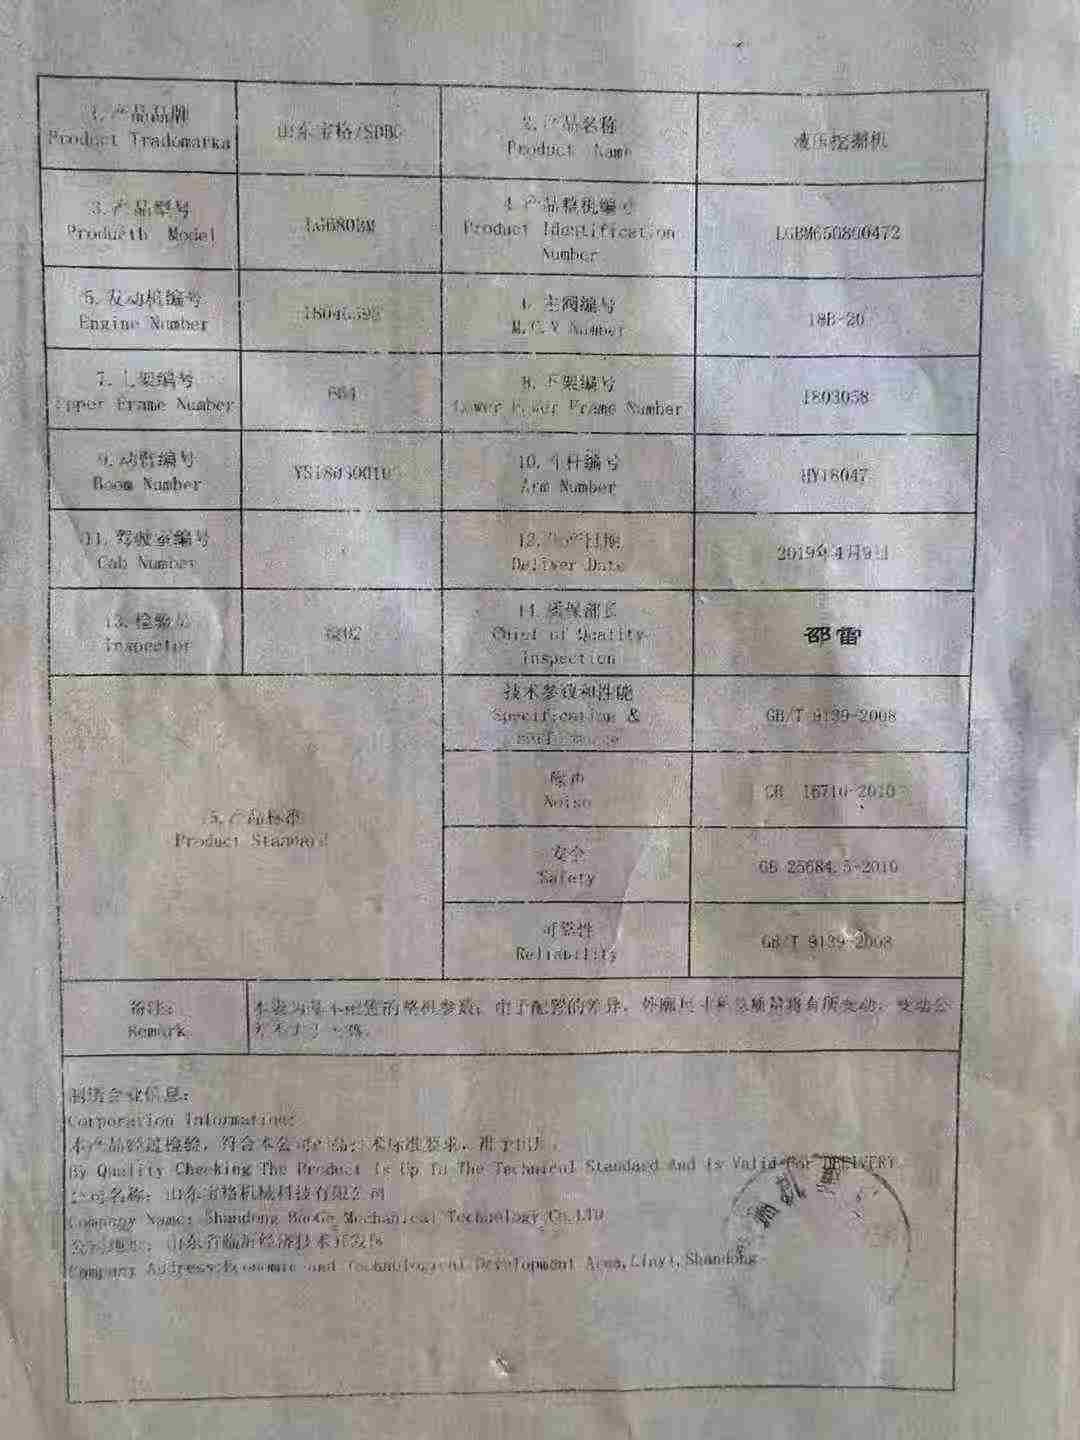 1. 产品品牌
Product Trademarka
山东宝格/SDBG
2. 产品名称
Product Name
液压挖掘机
3. 产品型号
Productb Model
LG6808M
4. 产品整机编号
Product Identification
Number
LGBM650800472
5. 发动机编号
Engine Number
6. 主阀编号
M.C.V Number
18B-20
7. 上架编号
Upper Frame Number
664
8. 下架编号
Lower Power Frame Number
1803058
9. 动臂编号
Boom Number
YS18030010
10. 斗杆编号
Arm Number
HY18047
11. 驾驶室编号
Cab Number
12. 生产日期
Deliver Date
2019年4月9日
13. 检验员
Inspector
14. 质保部长
Chief of Quality
Inspection
邵雷
技术参数和性能
Specification &
GB/T 9139-2008
噪声
Noise
GB 16710-2010
5. 产品标准
Product Standard
安全
Safety
GB 25684.5-2010
可靠性
Reliability
GB/T 9139-2008
备注:
Remark
本表为基本配置的整机参数，由于配置的差异，外廓尺寸和总质量将有所变动，变动公
制造企业信息:
Corporation Information:
本产品经过检验，符合本公司产品技术标准要求，准予出厂.
By Quality Checking The Product Is Up To The Technical Standard And Is Valid For DELIVERY
公司名称: 山东宝格机械科技有限公司
Company Name: Shandong BaoGe Mechanical Technology Co.LTD
公司地址: 山东省临沂经济技术开发区
Company Address:Economic and Technological Development Area,Linyi,Shandong